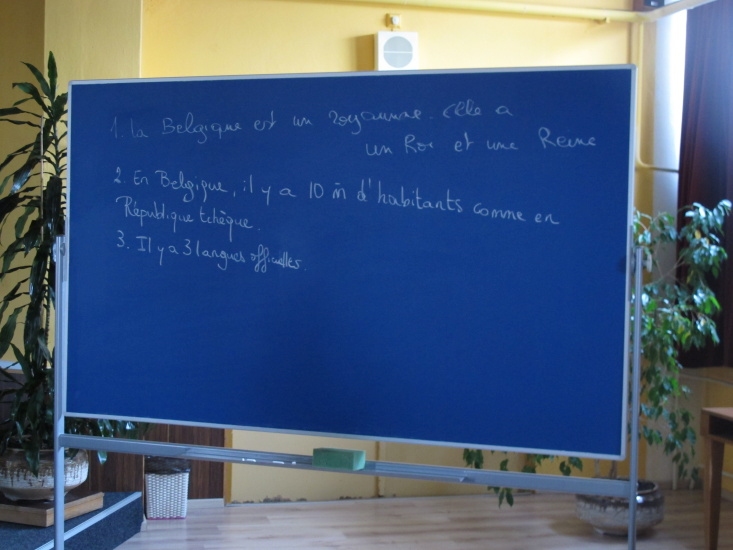 1. La Belgique est un royaume. Elle a
un Roi et une Reine
2. En Belgique, il y a 10 m̄ d'habitants comme en
République tchèque.
3. Il y a 3 langues officielles.